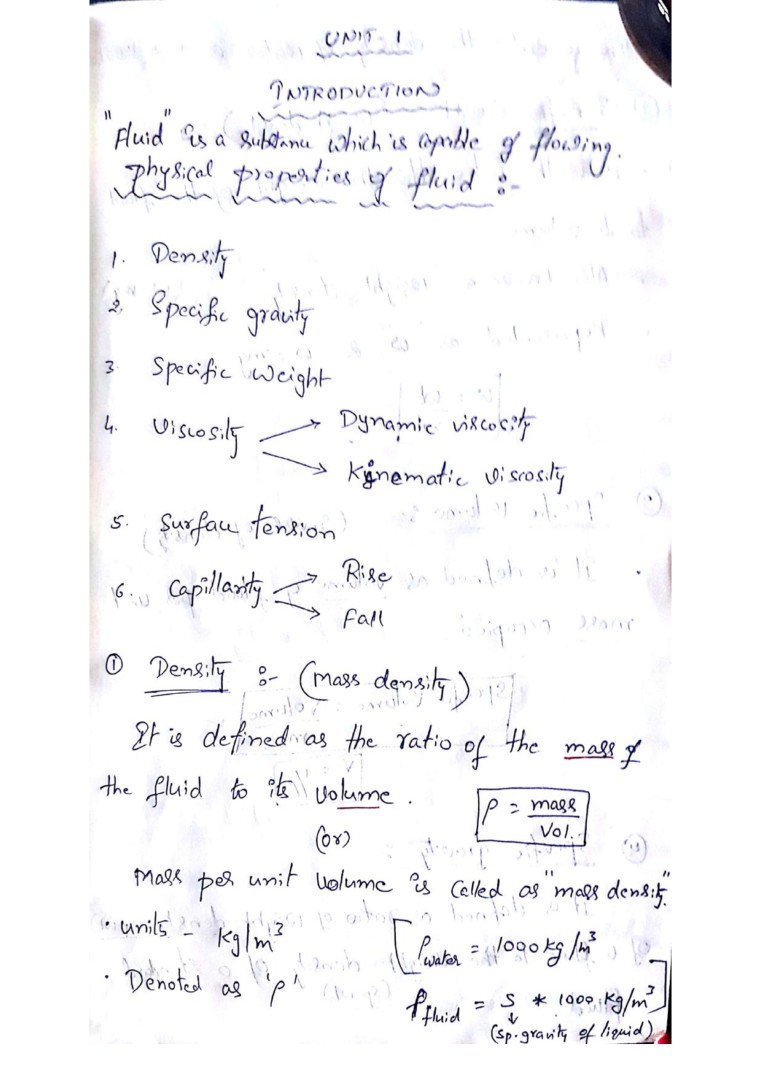 UNIT 1
INTRODUCTION
"Fluid" is a substance which is capable of flowing.
Physical properties of fluid :-
1. Density
2. Specific gravity
3. Specific Weight
4. Viscosity → Dynamic viscosity
→ Kinematic Viscosity
5. Surface tension
6. Capillarity → Rise
→ Fall
① Density :- (Mass density)
It is defined as the ratio of the mass of
the fluid to its volume.
ρ = mass / Vol.
(or)
Mass per unit Volume is called as "mass density".
• units - kg/m³
[ρwater = 1000 kg/m³
• Denoted as 'ρ'
ρfluid = S * 1000 kg/m³]
↓
(sp. gravity of liquid)